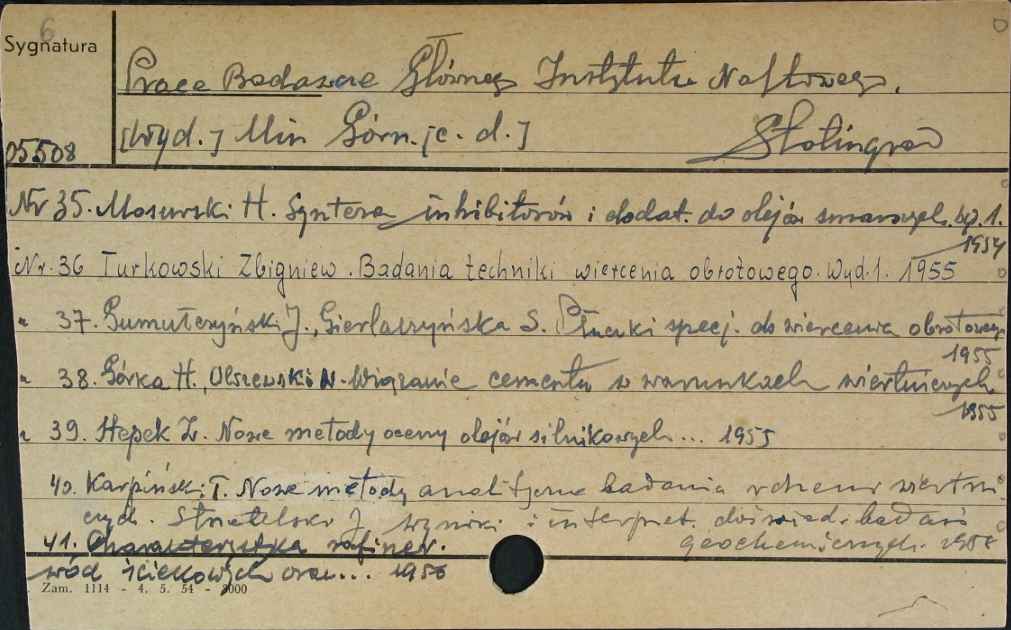 6
Sygnatura
Prace Badawcze Głównego Instytutu Naftowego.
[Wyd.] Min Górn. [c. d.] Stalinogród
05508
Nr 35. Mosurski H. Synteza inhibitorów i dodat. do olejów smarowych. Wyd. 1. 1954
Nr. 36 Turkowski Zbigniew. Badania techniki wiercenia obrotowego. Wyd. 1. 1955
" 37. Gumułczyński J., Gierlaszyńska S. Płuczki specj. do wiercenia obrotowego 1955
" 38. Górka H., Olszewski N. Wiązanie cementu w warunkach wiertniczych 1955
" 39. Hepek Z. Nowe metody oceny olejów silnikowych... 1955
40. Karpiński T. Nowe metody analityczne badania rdzeni wiertni-
czych. J. wyniki i interpret. doświad. badań
41. Charakterystyka rafiner. geochemicznych. 1956
wód ściekowych oraz... 1956
Zam. 1114 - 4. 5. 54 - 3000